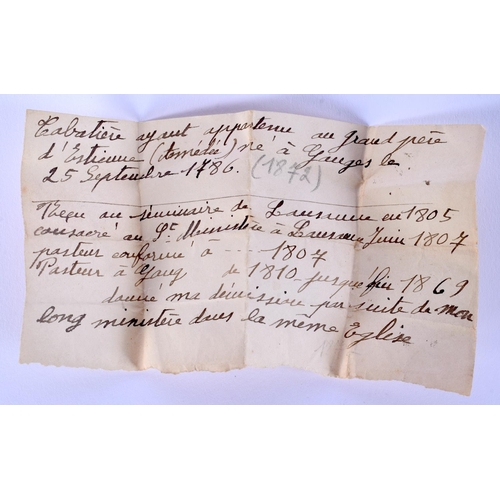 Tabatière ayant appartenu au grand père
d'Estienne (Amédée) né à Ganges le
25 Septembre 1786. (1872)
Reçu au séminaire de Lausanne en 1805
consacré au St Ministère à Lausanne Juin 1807
pasteur conformé à --- 1807
Pasteur à Gang de 1810 jusqu'à fin 1869
donné ma démission par suite de mon
long ministère dans la même Eglise